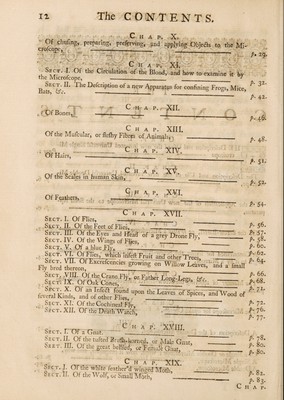 12 The CONTENTS.
CHAP. X.
Of chusing, preparing, preserving, and applying Objects to the Mi-
croscope, p. 29.
CHAP. XI.
SECT. I. Of the Circulation of the Blood, and how to examine it by
the Microscope, p. 32.
SECT. II. The Description of a new Apparatus for confining Frogs, Mice,
Bats, &c. p. 42.
CHAP. XII.
Of Bones, p. 46.
CHAP. XIII.
Of the Muscular, or fleshy Fibres of Animals, p. 48.
CHAP. XIV.
Of Hairs, p. 51.
CHAP. XV.
Of the Scales in human Skin, p. 52.
CHAP. XVI.
Of Feathers, p. 54.
CHAP. XVII.
SECT. I. Of Flies, p. 56.
SECT. II. Of the Feet of Flies, p. 56.
SECT. III. Of the Eyes and Head of a grey Drone Fly, p. 57.
SECT. IV. Of the Wings of Flies, p. 58.
SECT. V. Of a blue Fly, p. 60.
SECT. VI. Of Flies, which infest Fruit and other Trees, p. 62.
SECT. VII. Of Excrescencies growing on Willow Leaves, and a small
Fly bred thereon, p. 64.
SECT. VIII. Of the Crane Fly, or Father Long-Legs, &c. p. 66.
SECT. IX. Of Oak Cones, p. 68.
SECT. X. Of an Insect found upon the Leaves of Spices, and Wood of
several Kinds, and of other Flies, p. 72.
SECT. XI. Of the Cochineal Fly, p. 76.
SECT. XII. Of the Death Watch, p. 77.
CHAP. XVIII.
SECT. I. Of a Gnat. p. 78.
SECT. II. Of the tufted Brush-horned, or Male Gnat, p. 80.
SECT. III. Of the great bellied, or Female Gnat, p. 80.
CHAP. XIX.
SECT. I. Of the white feather'd winged Moth, p. 82.
SECT. II. Of the Wolf, or Small Moth, p. 83.
CHAP.